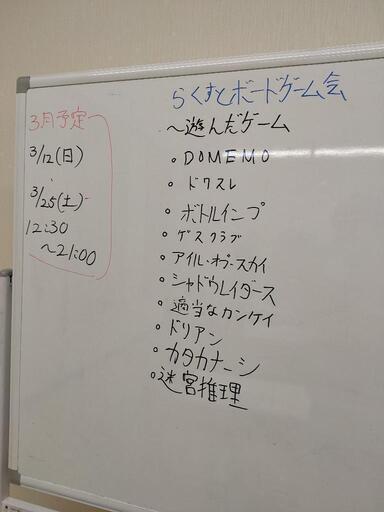 らくすとボードゲーム会
3月予定
3/12(日)
3/25(土)
12:30
～21:00
～遊んだゲーム
・DOMEMO
・ドクスレ
・ボトルインプ
・ゲスクラブ
・アイル・オブ・スカイ
・シャドウレイダース
・適当なカンケイ
・ドリアン
・カタカナーシ
・迷宮推理